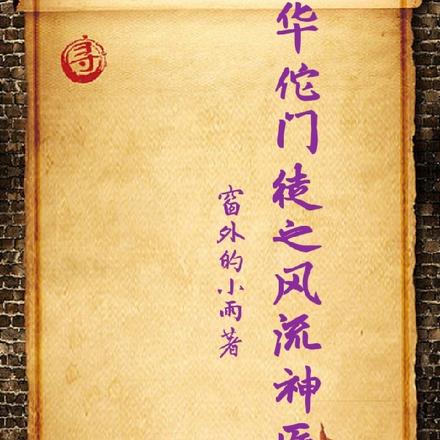 华佗门徒之风流神医
窗外的小雨著
寻